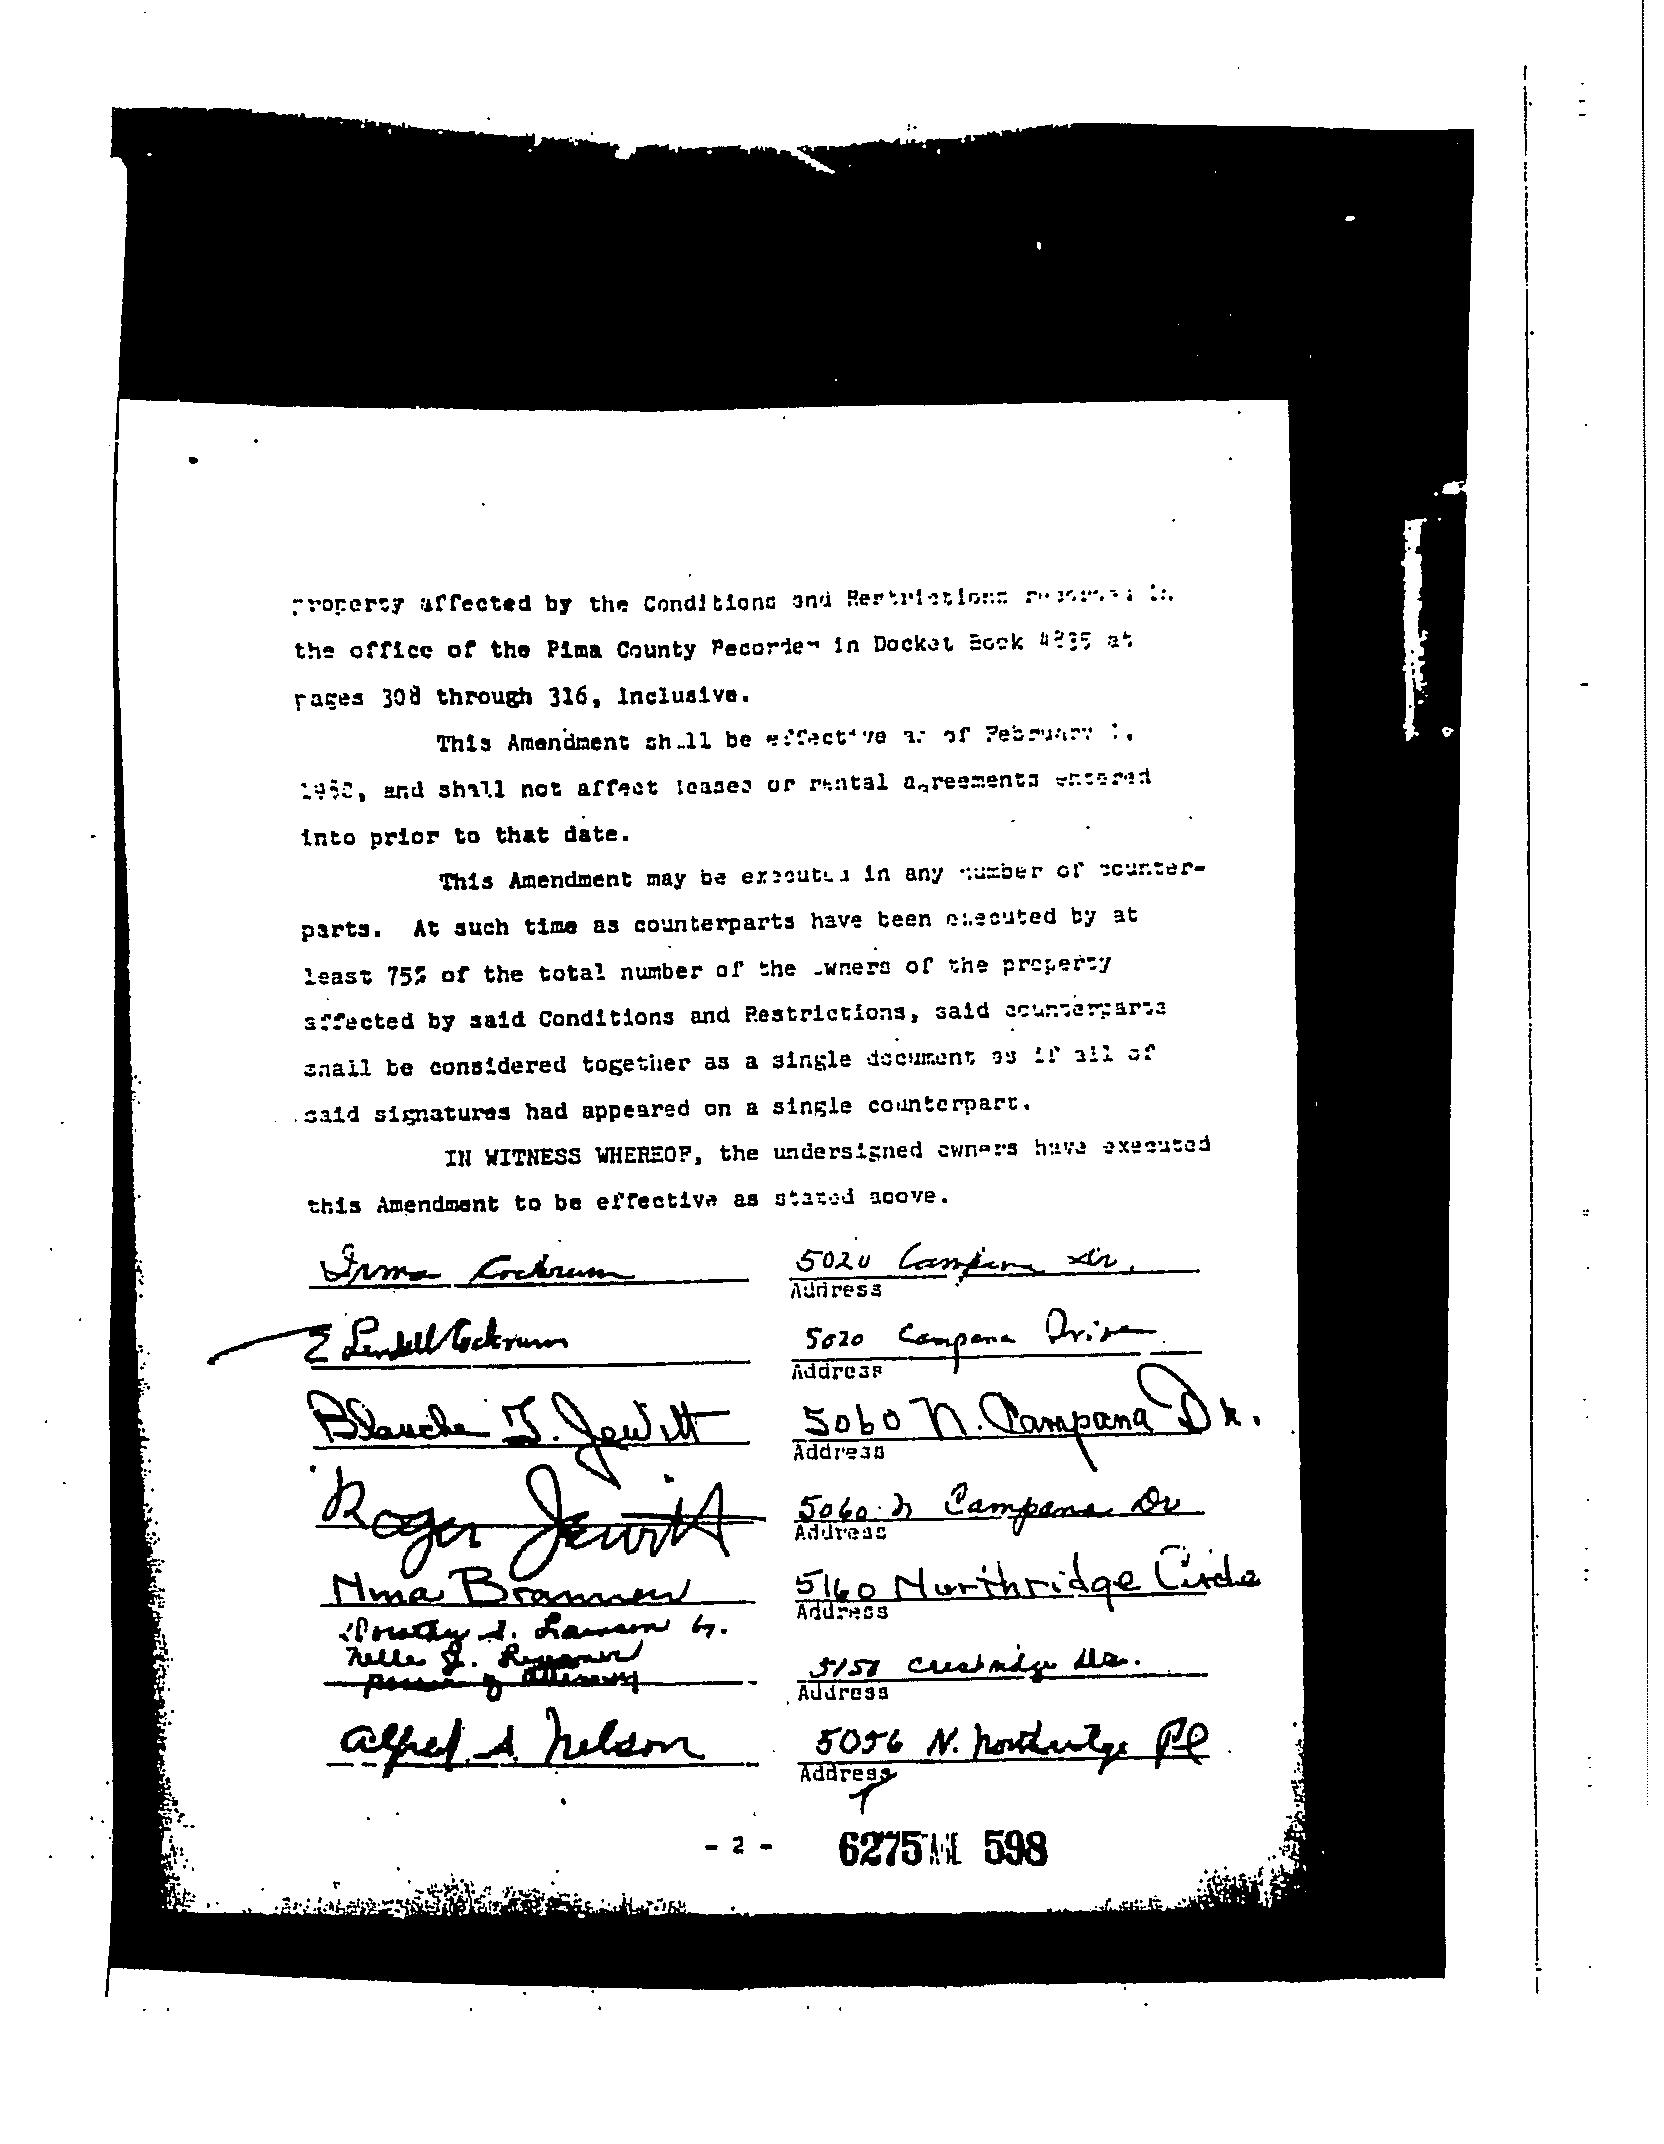 property affected by the Conditions and Restrictions recorded in
the office of the Pima County Recorder in Docket Book at
pages 308 through 316, inclusive.
This Amendment shall be effective as of February 1,
and shall not affect leases or rental agreements entered
into prior to that date.
This Amendment may be executed in any number of counter-
parts. At such time as counterparts have been executed by at
least 75% of the total number of the owners of the property
affected by said Conditions and Restrictions, said counterparts
shall be considered together as a single document as if all of
said signatures had appeared on a single counterpart.
IN WITNESS WHEREOF, the undersigned owners have executed
this Amendment to be effective as stated above.
Irma Cockrum 5020 Campana Dr.
Address
E Lendell Cockrum 5020 Campana Drive
Address
Blanche T. Jewitt 5060 N. Campana Dr.
Address
Roger Jewitt 5060 N Campana Dr
Address
Nma Brannen 5160 Northridge Circle
Address
Dorothy S. Lawson by
Nelle J.
power of attorney 5151 Crestridge Dr.
Address
Alfred S. Nelson 5056 N. Northridge Pl
Address
- 2 - 6275 PAGE 598